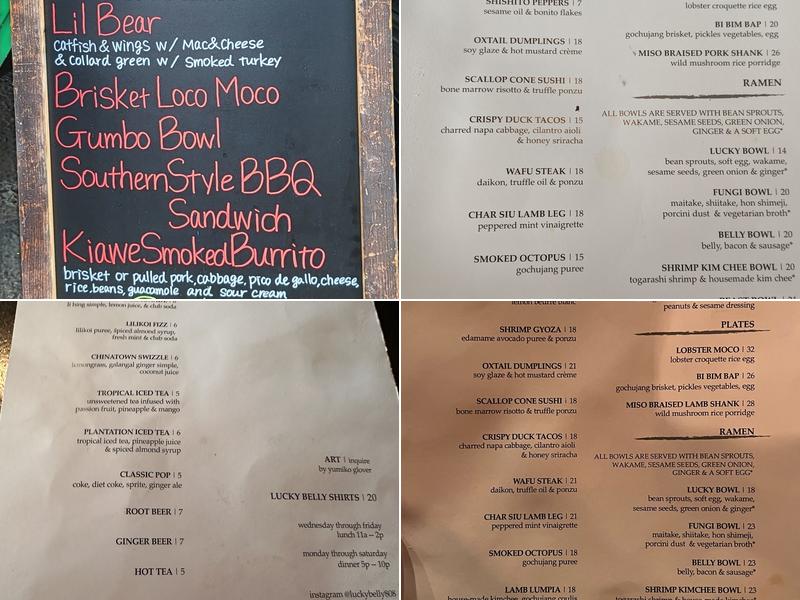 Lil Bear
catfish & wings w/ Mac&Cheese
& collard green w/ Smoked turkey
Brisket Loco Moco
Gumbo Bowl
SouthernStyle BBQ
Sandwich
KiaweSmokedBurrito
brisket or pulled pork, cabbage, pico de gallo, cheese,
rice, beans, guacamole and sour cream
SHISHITO PEPPERS | 7
sesame oil & bonito flakes
OXTAIL DUMPLINGS | 18
soy glaze & hot mustard crème
SCALLOP CONE SUSHI | 18
bone marrow risotto & truffle ponzu
CRISPY DUCK TACOS | 15
charred napa cabbage, cilantro aioli
& honey sriracha
WAFU STEAK | 18
daikon, truffle oil & ponzu
CHAR SIU LAMB LEG | 18
peppered mint vinaigrette
SMOKED OCTOPUS | 15
gochujang puree
lobster croquette rice egg
BI BIM BAP | 20
gochujang brisket, pickles vegetables, egg
MISO BRAISED PORK SHANK | 26
wild mushroom rice porridge
RAMEN
ALL BOWLS ARE SERVED WITH BEAN SPROUTS,
WAKAME, SESAME SEEDS, GREEN ONION,
GINGER & A SOFT EGG*
LUCKY BOWL | 14
bean sprouts, soft egg, wakame,
sesame seeds, green onion & ginger*
FUNGI BOWL | 20
maitake, shiitake, hon shimeji,
porcini dust & vegetarian broth*
BELLY BOWL | 20
belly, bacon & sausage*
SHRIMP KIM CHEE BOWL | 20
togarashi shrimp & housemade kim chee*
li hing simple, lemon juice, & club soda
LILIKOI FIZZ | 6
lilikoi puree, spiced almond syrup,
fresh mint & club soda
CHINATOWN SWIZZLE | 6
lemongrass, galangal ginger simple,
coconut juice
TROPICAL ICED TEA | 5
unsweetened tea infused with
passion fruit, pineapple & mango
PLANTATION ICED TEA | 6
tropical iced tea, pineapple juice
& spiced almond syrup
CLASSIC POP | 5
coke, diet coke, sprite, ginger ale
ROOT BEER | 7
GINGER BEER | 7
HOT TEA | 5
ART | inquire
by yumiko glover
LUCKY BELLY SHIRTS | 20
wednesday through friday
lunch 11a – 2p
monday through saturday
dinner 5p – 10p
instagram @luckybelly808
lemon beurre blanc
SHRIMP GYOZA | 18
edamame avocado puree & ponzu
OXTAIL DUMPLINGS | 21
soy glaze & hot mustard crème
SCALLOP CONE SUSHI | 18
bone marrow risotto & truffle ponzu
CRISPY DUCK TACOS | 18
charred napa cabbage, cilantro aioli
& honey sriracha
WAFU STEAK | 21
daikon, truffle oil & ponzu
CHAR SIU LAMB LEG | 21
peppered mint vinaigrette
SMOKED OCTOPUS | 18
gochujang puree
LAMB LUMPIA | 18
house-made kimchee, gochujang coulis
peanuts & sesame dressing
PLATES
LOBSTER MOCO | 32
lobster croquette rice egg
BI BIM BAP | 26
gochujang brisket, pickles vegetables, egg
MISO BRAISED LAMB SHANK | 28
wild mushroom rice porridge
RAMEN
ALL BOWLS ARE SERVED WITH BEAN SPROUTS,
WAKAME, SESAME SEEDS, GREEN ONION,
GINGER & A SOFT EGG*
LUCKY BOWL | 18
bean sprouts, soft egg, wakame,
sesame seeds, green onion & ginger*
FUNGI BOWL | 23
maitake, shiitake, hon shimeji,
porcini dust & vegetarian broth*
BELLY BOWL | 23
belly, bacon & sausage*
SHRIMP KIMCHEE BOWL | 23